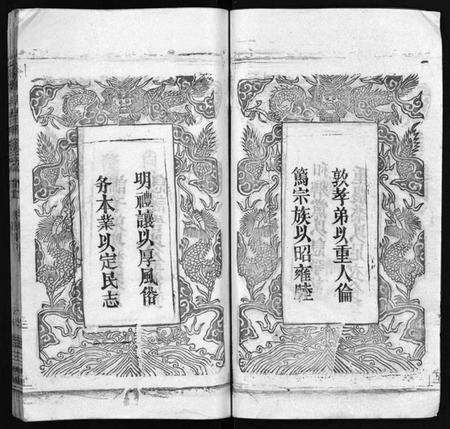 敦孝弟以重人倫
篤宗族以昭雍睦
明禮讓以厚風俗
务本業以定民志